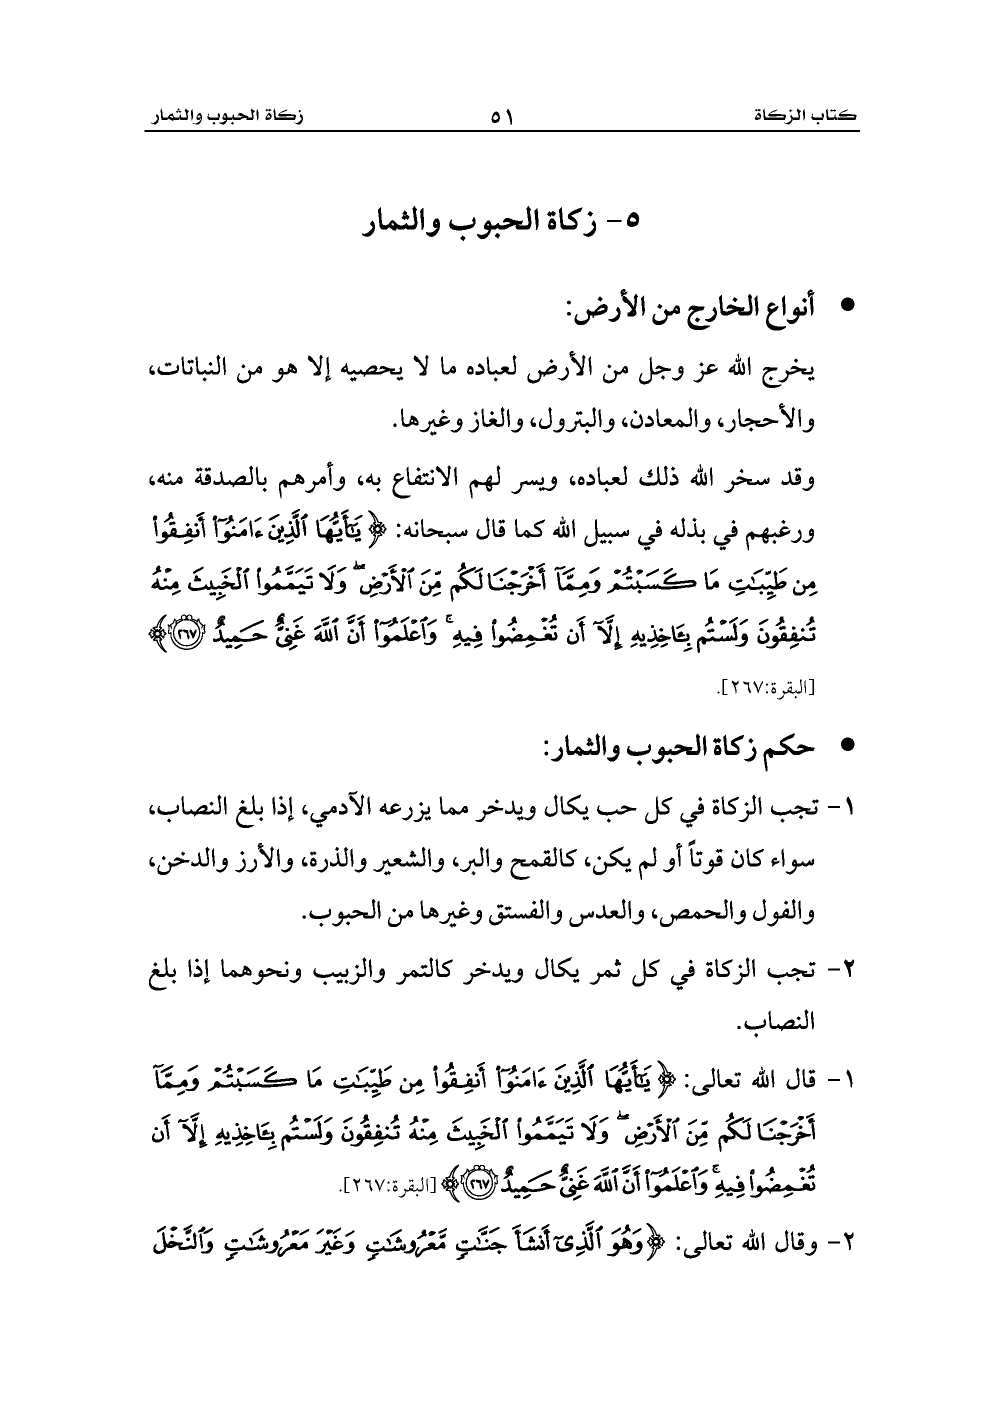 كتاب الزكاة ٥١ زكاة الحبوب والثمار
٥- زكاة الحبوب والثمار
● أنواع الخارج من الأرض:
يخرج الله عز وجل من الأرض لعباده ما لا يحصيه إلا هو من النباتات،
والأحجار، والمعادن، والبترول، والغاز وغيرها.
وقد سخر الله ذلك لعباده، ويسر لهم الانتفاع به، وأمرهم بالصدقة منه،
ورغبهم في بذله في سبيل الله كما قال سبحانه: ﴿ يَٰٓأَيُّهَا ٱلَّذِينَ ءَامَنُوٓا۟ أَنفِقُوا۟
مِن طَيِّبَٰتِ مَا كَسَبْتُمْ وَمِمَّآ أَخْرَجْنَا لَكُم مِّنَ ٱلْأَرْضِ ۖ وَلَا تَيَمَّمُوا۟ ٱلْخَبِيثَ مِنْهُ
تُنفِقُونَ وَلَسْتُم بِـَٔاخِذِيهِ إِلَّآ أَن تُغْمِضُوا۟ فِيهِ ۚ وَٱعْلَمُوٓا۟ أَنَّ ٱللَّهَ غَنِىٌّ حَمِيدٌ ٢٦٧ ﴾
[البقرة:٢٦٧].
● حكم زكاة الحبوب والثمار:
١- تجب الزكاة في كل حب يكال ويدخر مما يزرعه الآدمي، إذا بلغ النصاب،
سواء كان قوتاً أو لم يكن، كالقمح والبر، والشعير والذرة، والأرز والدخن،
والفول والحمص، والعدس والفستق وغيرها من الحبوب.
٢- تجب الزكاة في كل ثمر يكال ويدخر كالتمر والزبيب ونحوهما إذا بلغ
النصاب.
١- قال الله تعالى: ﴿ يَٰٓأَيُّهَا ٱلَّذِينَ ءَامَنُوٓا۟ أَنفِقُوا۟ مِن طَيِّبَٰتِ مَا كَسَبْتُمْ وَمِمَّآ
أَخْرَجْنَا لَكُم مِّنَ ٱلْأَرْضِ ۖ وَلَا تَيَمَّمُوا۟ ٱلْخَبِيثَ مِنْهُ تُنفِقُونَ وَلَسْتُم بِـَٔاخِذِيهِ إِلَّآ أَن
تُغْمِضُوا۟ فِيهِ ۚ وَٱعْلَمُوٓا۟ أَنَّ ٱللَّهَ غَنِىٌّ حَمِيدٌ ٢٦٧ ﴾ [البقرة:٢٦٧].
٢- وقال الله تعالى: ﴿ وَهُوَ ٱلَّذِىٓ أَنشَأَ جَنَّٰتٍ مَّعْرُوشَٰتٍ وَغَيْرَ مَعْرُوشَٰتٍ وَٱلنَّخْلَ